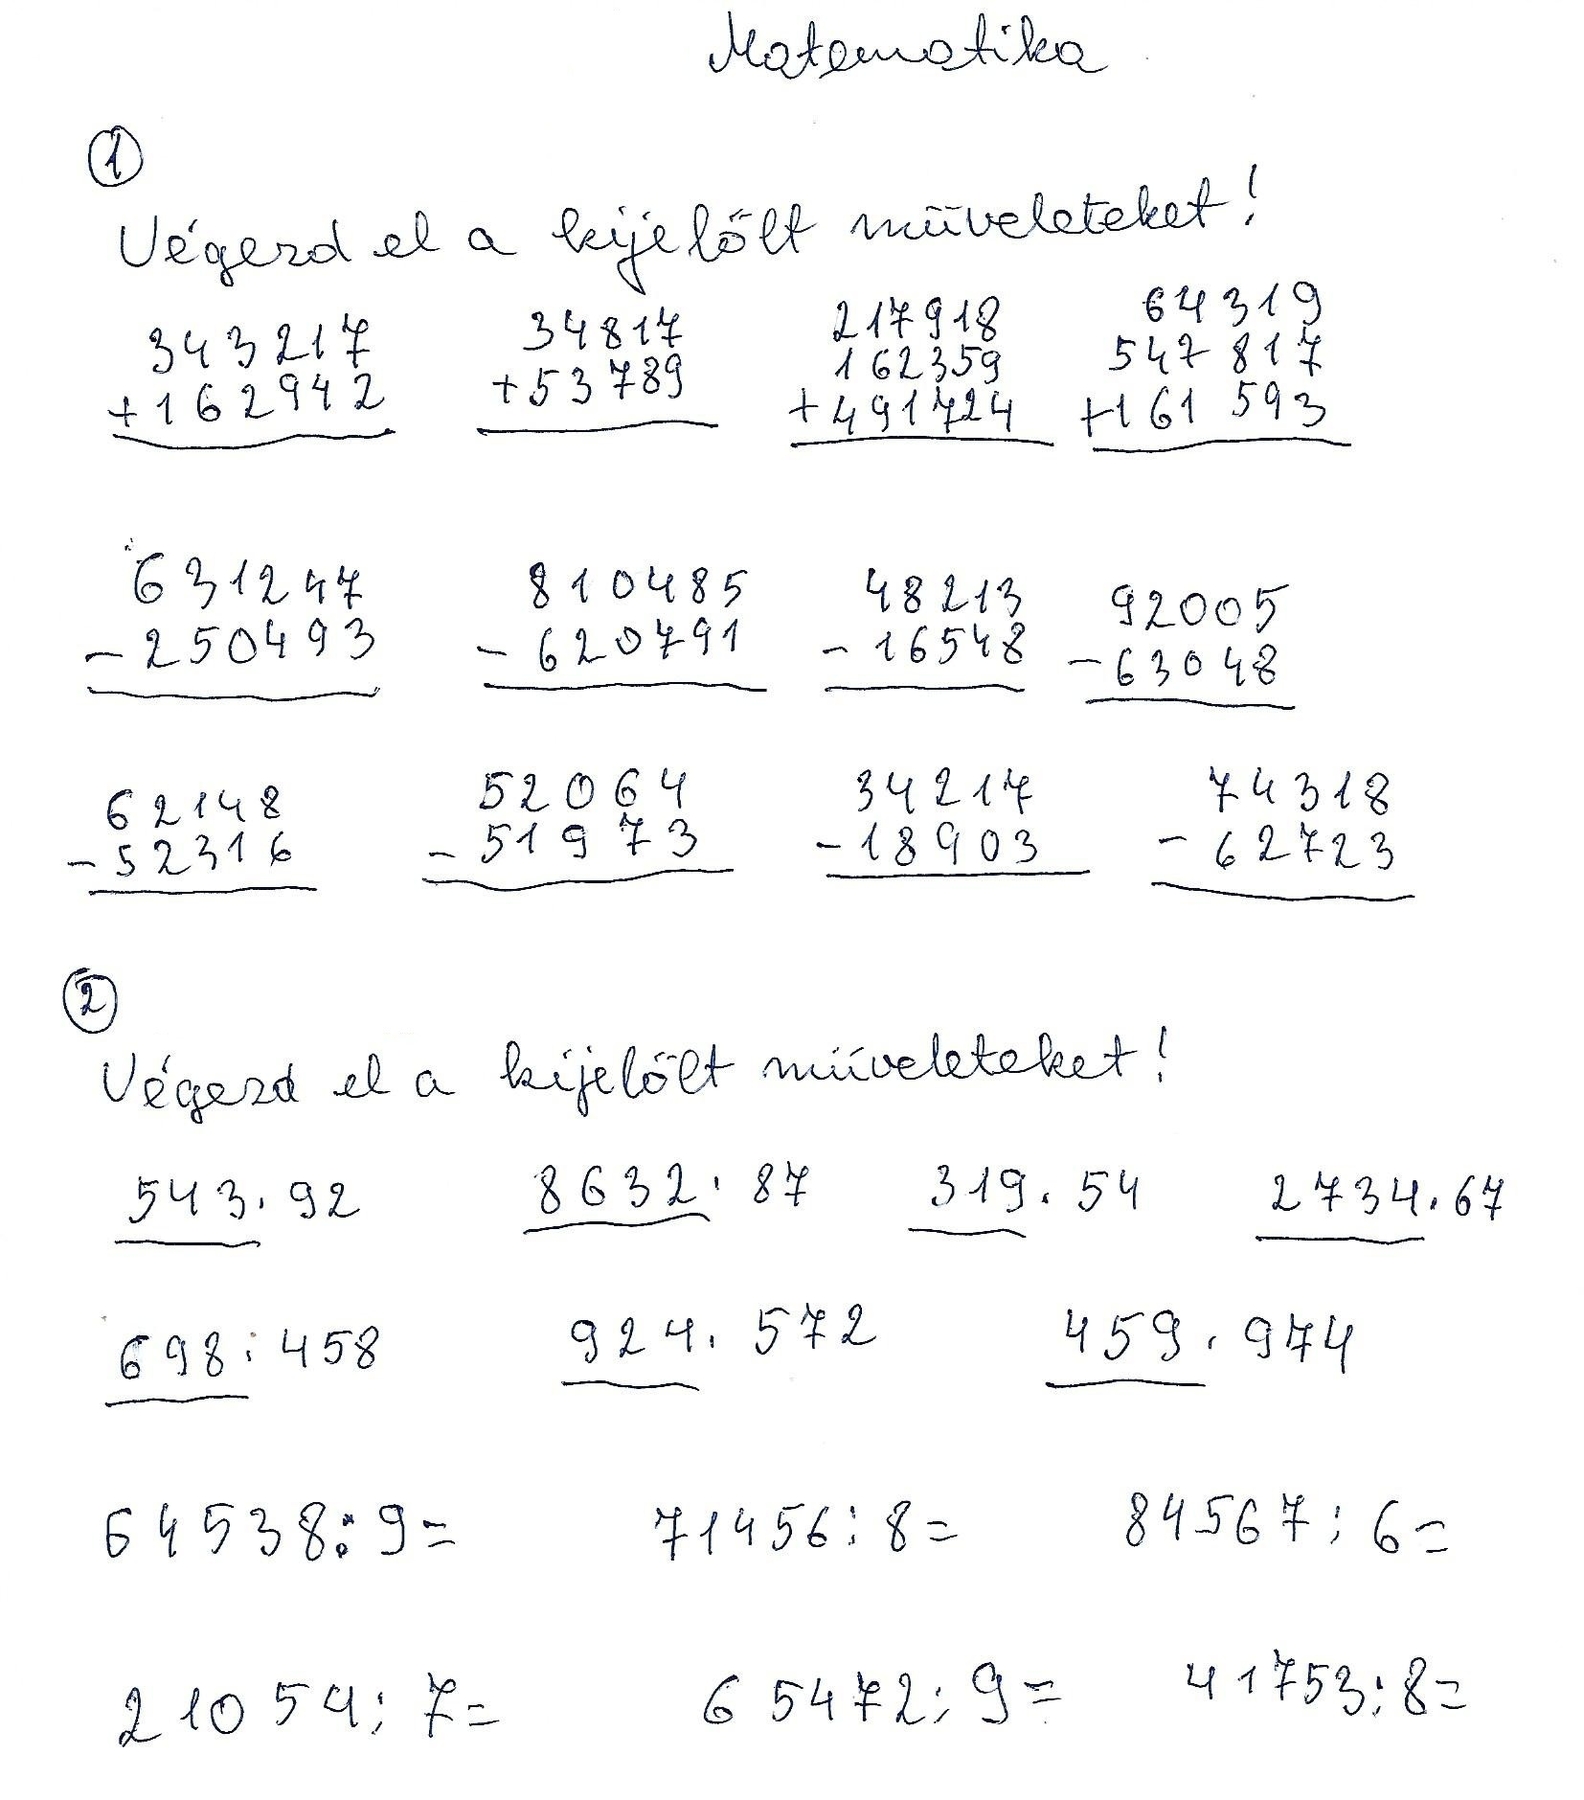 Matematika
1
Végezd el a kijelölt műveleteket!
343217 34817 217918 64319
+162942 +53789 162359 547817
+491724 +161593
631247 810485 48213 92005
-250493 -620791 -16548 -63048
62148 52064 34217 74318
-52316 -51973 -18903 -62723
2
Végezd el a kijelölt műveleteket!
543. 92 8632. 87 319. 54 2734. 67
698: 458 924. 572 459. 974
64538:9= 71456:8= 84567:6=
21054:7= 65472:9= 41753:8=